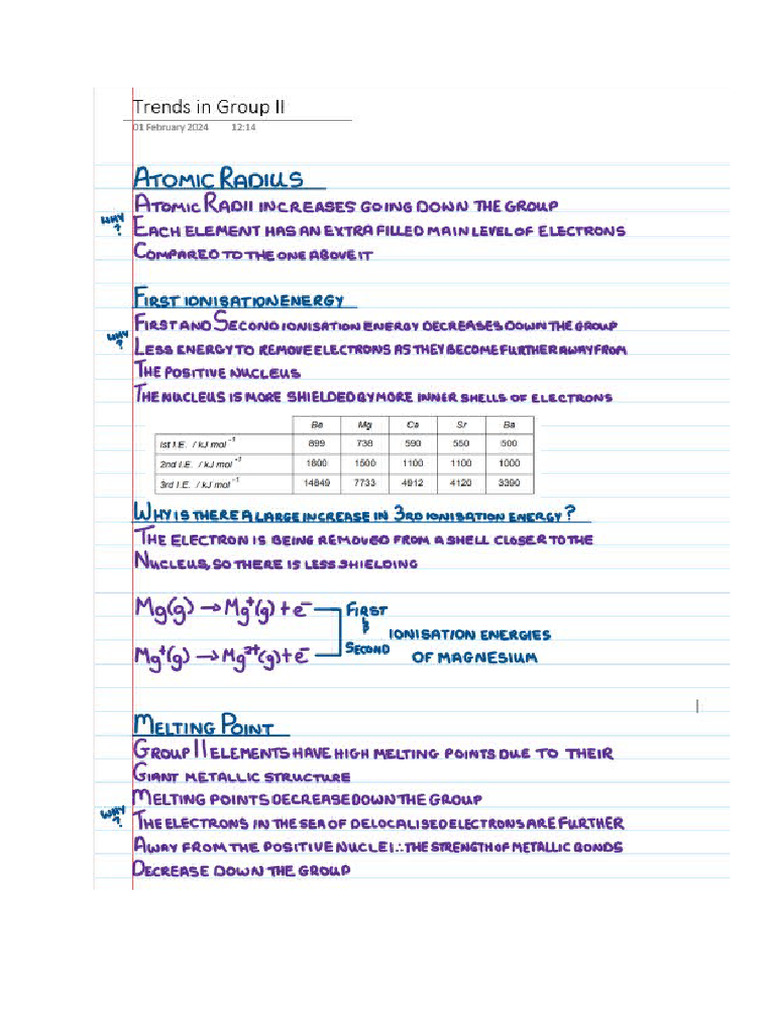 Trends in Group II
01 February 2024 12:14
ATOMIC RADIUS
ATOMIC RADII INCREASES GOING DOWN THE GROUP
WHY? EACH ELEMENT HAS AN EXTRA FILLED MAIN LEVEL OF ELECTRONS
COMPARED TO THE ONE ABOVE IT
FIRST IONISATION ENERGY
FIRST AND SECOND IONISATION ENERGY DECREASES DOWN THE GROUP
WHY? LESS ENERGY TO REMOVE ELECTRONS AS THEY BECOME FURTHER AWAY FROM
THE POSITIVE NUCLEUS
THE NUCLEUS IS MORE SHIELDED BY MORE INNER SHELLS OF ELECTRONS
Be Mg Ca Sr Ba
Ist I.E. / kJ mol⁻¹ 899 738 590 550 500
2nd I.E. / kJ mol⁻¹ 1800 1500 1100 1100 1000
3rd I.E. / kJ mol⁻¹ 14849 7733 4912 4120 3390
WHY IS THERE A LARGE INCREASE IN 3RD IONISATION ENERGY?
THE ELECTRON IS BEING REMOVED FROM A SHELL CLOSER TO THE
NUCLEUS, SO THERE IS LESS SHIELDING
Mg(g) → Mg⁺(g) + e⁻ FIRST
& IONISATION ENERGIES
Mg⁺(g) → Mg²⁺(g) + e⁻ SECOND OF MAGNESIUM
MELTING POINT
GROUP II ELEMENTS HAVE HIGH MELTING POINTS DUE TO THEIR
GIANT METALLIC STRUCTURE
MELTING POINTS DECREASE DOWN THE GROUP
WHY? THE ELECTRONS IN THE SEA OF DELOCALISED ELECTRONS ARE FURTHER
AWAY FROM THE POSITIVE NUCLEI ∴ THE STRENGTH OF METALLIC BONDS
DECREASE DOWN THE GROUP